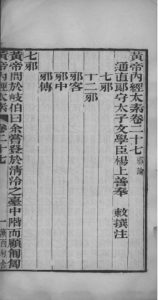 黃帝內經太素卷二十七 邪論
通直郎守太子文學臣楊上善奉 敕撰注
七邪
十二邪
邪客
邪中
邪傳
七邪
黃帝問於岐伯曰余嘗登於清泠之臺中階而顧匍匐
黃帝內經太素 卷二十七